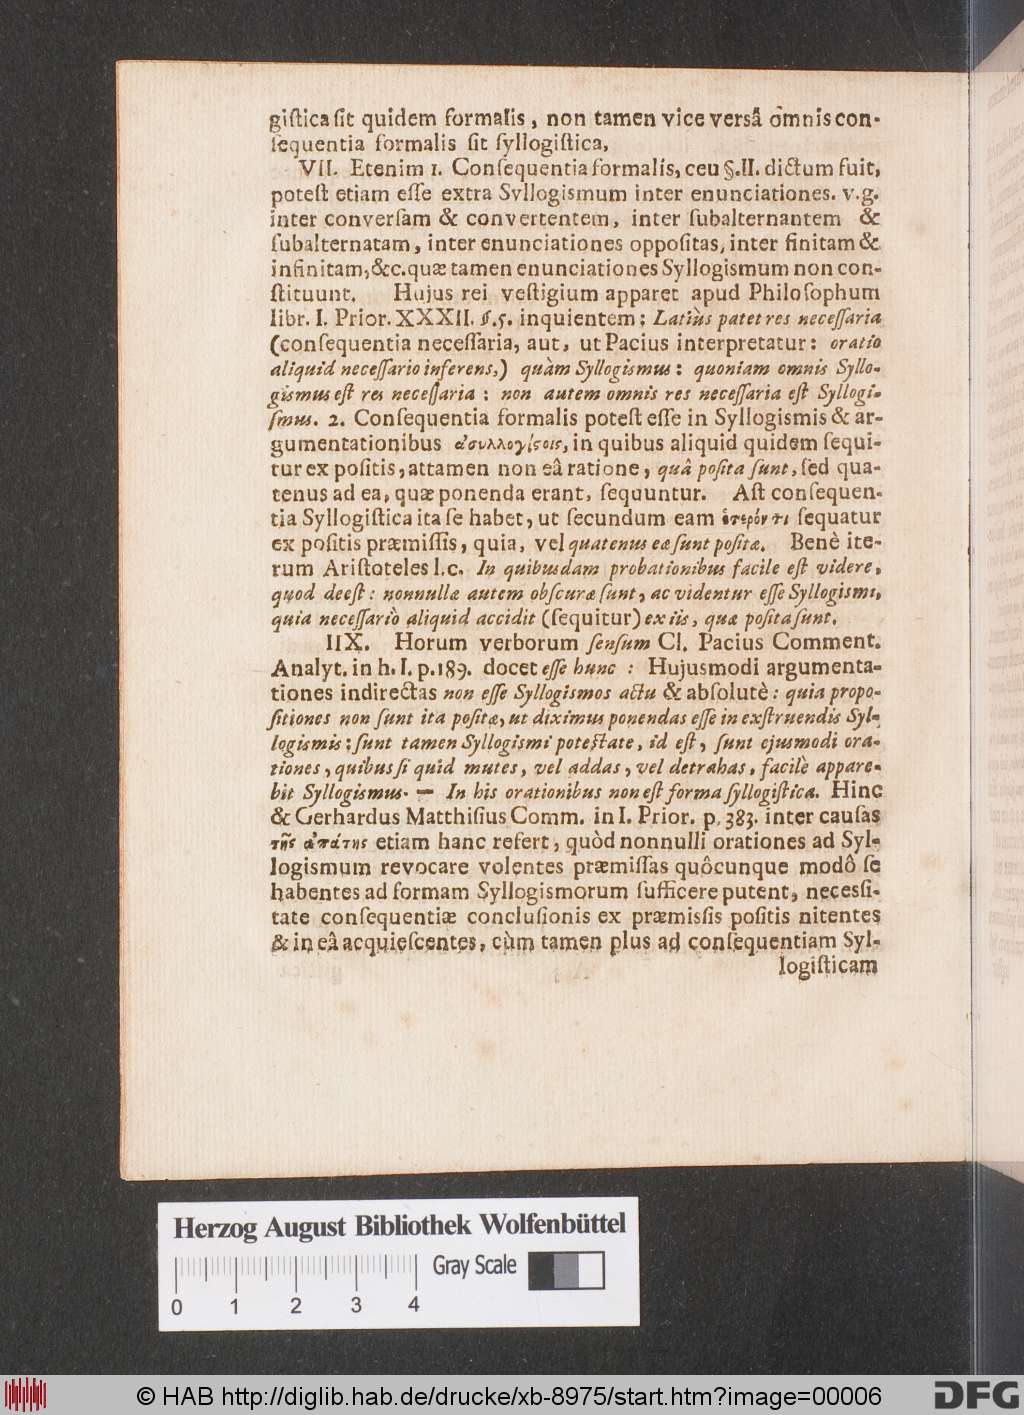 giſtica ſit quidem formalis, non tamen vice versâ omnis con-
ſequentia formalis ſit ſyllogiſtica,
VII. Etenim 1. Conſequentia formalis, ceu §.II. dictum fuit,
poteſt etiam eſſe extra Syllogismum inter enunciationes. v.g.
inter converſam & convertentem, inter ſubalternantem &
ſubalternatam, inter enunciationes oppoſitas, inter finitam &
infinitam, &c. quæ tamen enunciationes Syllogismum non con-
ſtituunt. Hujus rei veſtigium apparet apud Philoſophum
libr. I. Prior. XXXII. ſ.5. inquientem: Latiùs patet res neceſſaria
(conſequentia neceſſaria, aut, ut Pacius interpretatur: oratio
aliquid neceſſario inferens,) quàm Syllogismus: quoniam omnis Syllo-
gismus eſt res neceſſaria: non autem omnis res neceſſaria eſt Syllogi-
ſmus. 2. Conſequentia formalis poteſt eſſe in Syllogismis & ar-
gumentationibus ἀσυλλογίςοις, in quibus aliquid quidem ſequi-
tur ex poſitis, attamen non eâ ratione, quâ poſita ſunt, ſed qua-
tenus ad ea, quæ ponenda erant, ſequuntur. Aſt conſequen-
tia Syllogiſtica ita ſe habet, ut ſecundum eam ἑτερόν τι ſequatur
ex poſitis præmiſſis, quia, vel quatenus eæ ſunt poſitæ. Benè ite-
rum Ariſtoteles l.c. In quibusdam probationibus facile eſt videre,
quod deeſt: nonnullæ autem obſcuræ ſunt, ac videntur eſſe Syllogismi,
quia neceſſariò aliquid accidit (ſequitur) ex iis, quæ poſita ſunt.
IIX. Horum verborum ſenſum Cl. Pacius Comment.
Analyt. in h. I. p. 189. docet eſſe hunc: Hujusmodi argumenta-
tiones indirectas non eſſe Syllogismos actu & abſolutè: quia propo-
ſitiones non ſunt ita poſitæ, ut diximus ponendas eſſe in exſtruendis Syl-
logismis: ſunt tamen Syllogismi poteſtate, id eſt, ſunt ejusmodi ora-
tiones, quibus ſi quid mutes, vel addas, vel detrahas, facilè appare-
bit Syllogismus. — In his orationibus non eſt forma ſyllogiſtica. Hinc
& Gerhardus Matthiſius Comm. in I. Prior. p. 383. inter cauſas
τῆς ἀπάτης etiam hanc refert, quòd nonnulli orationes ad Syl-
logismum revocare volentes præmiſſas quôcunque modô ſe
habentes ad formam Syllogismorum ſufficere putent, neceſſi-
tate conſequentiæ concluſionis ex præmissis poſitis nitentes
& in eâ acquieſcentes, cùm tamen plus ad conſequentiam Syl-
logiſticam
Herzog August Bibliothek Wolfenbüttel
Gray Scale
0 1 2 3 4
© HAB http://diglib.hab.de/drucke/xb-8975/start.htm?image=00006
DFG